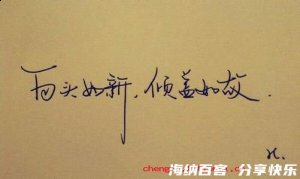 白头如新，倾盖如故.
海纳百客 分享快乐